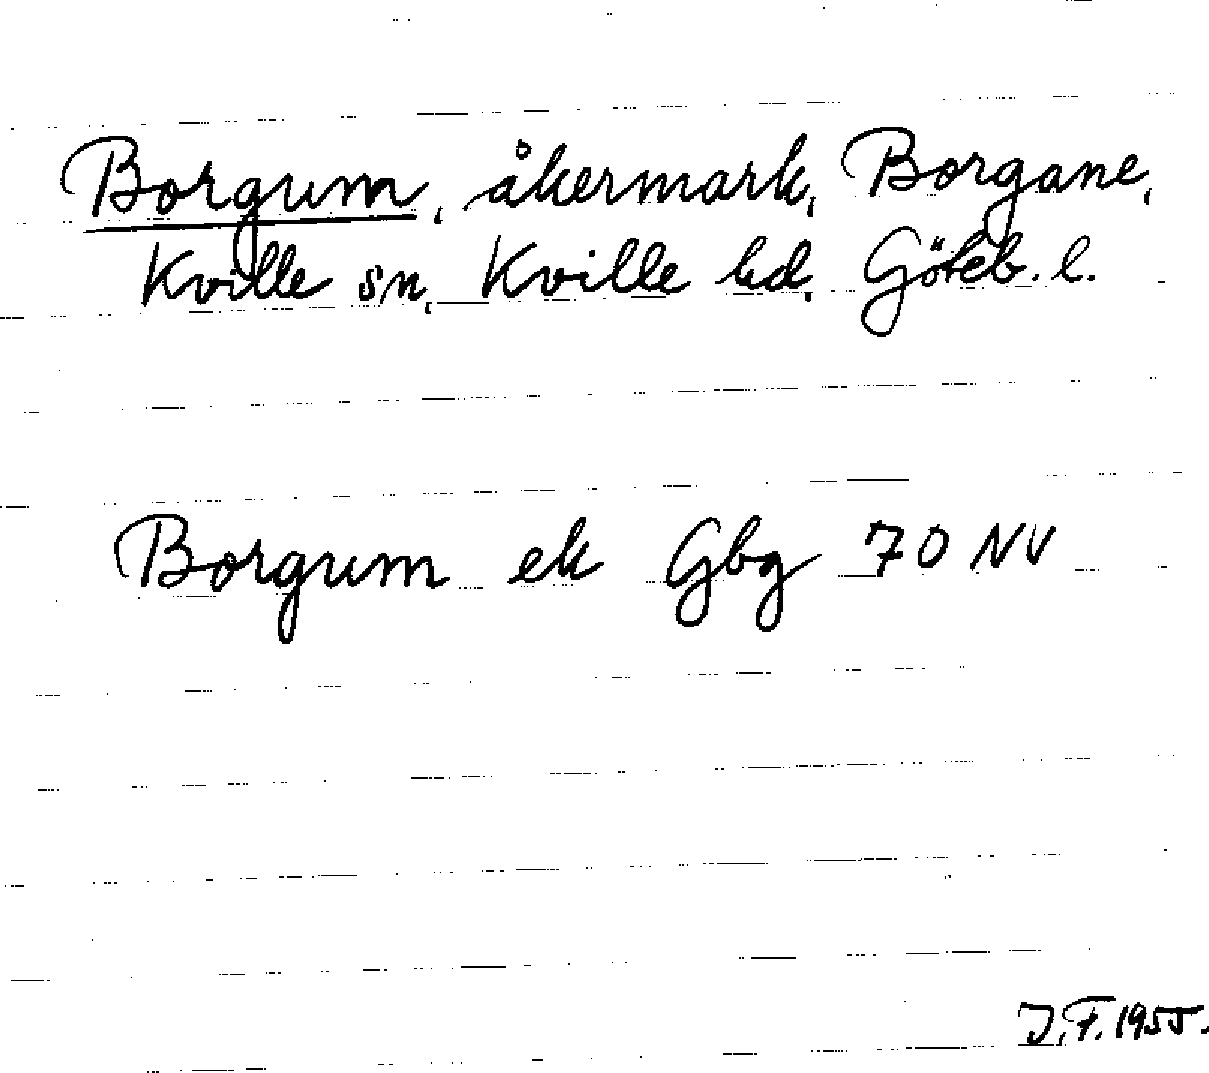 Borgum, åkermark, Borgane,
Kville sn, Kville hd, Göteb. l.
Borgum ek Gbg 70 NV
J.F. 1955.